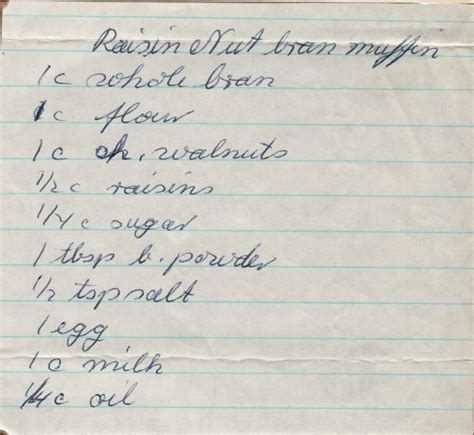 Raisin Nut bran muffin
1 c whole bran
1 c flour
1 c ch. walnuts
1/2 c raisins
1/4 c sugar
1 tbsp b. powder
1/2 tsp salt
1 egg
1 c milk
1/4 c oil